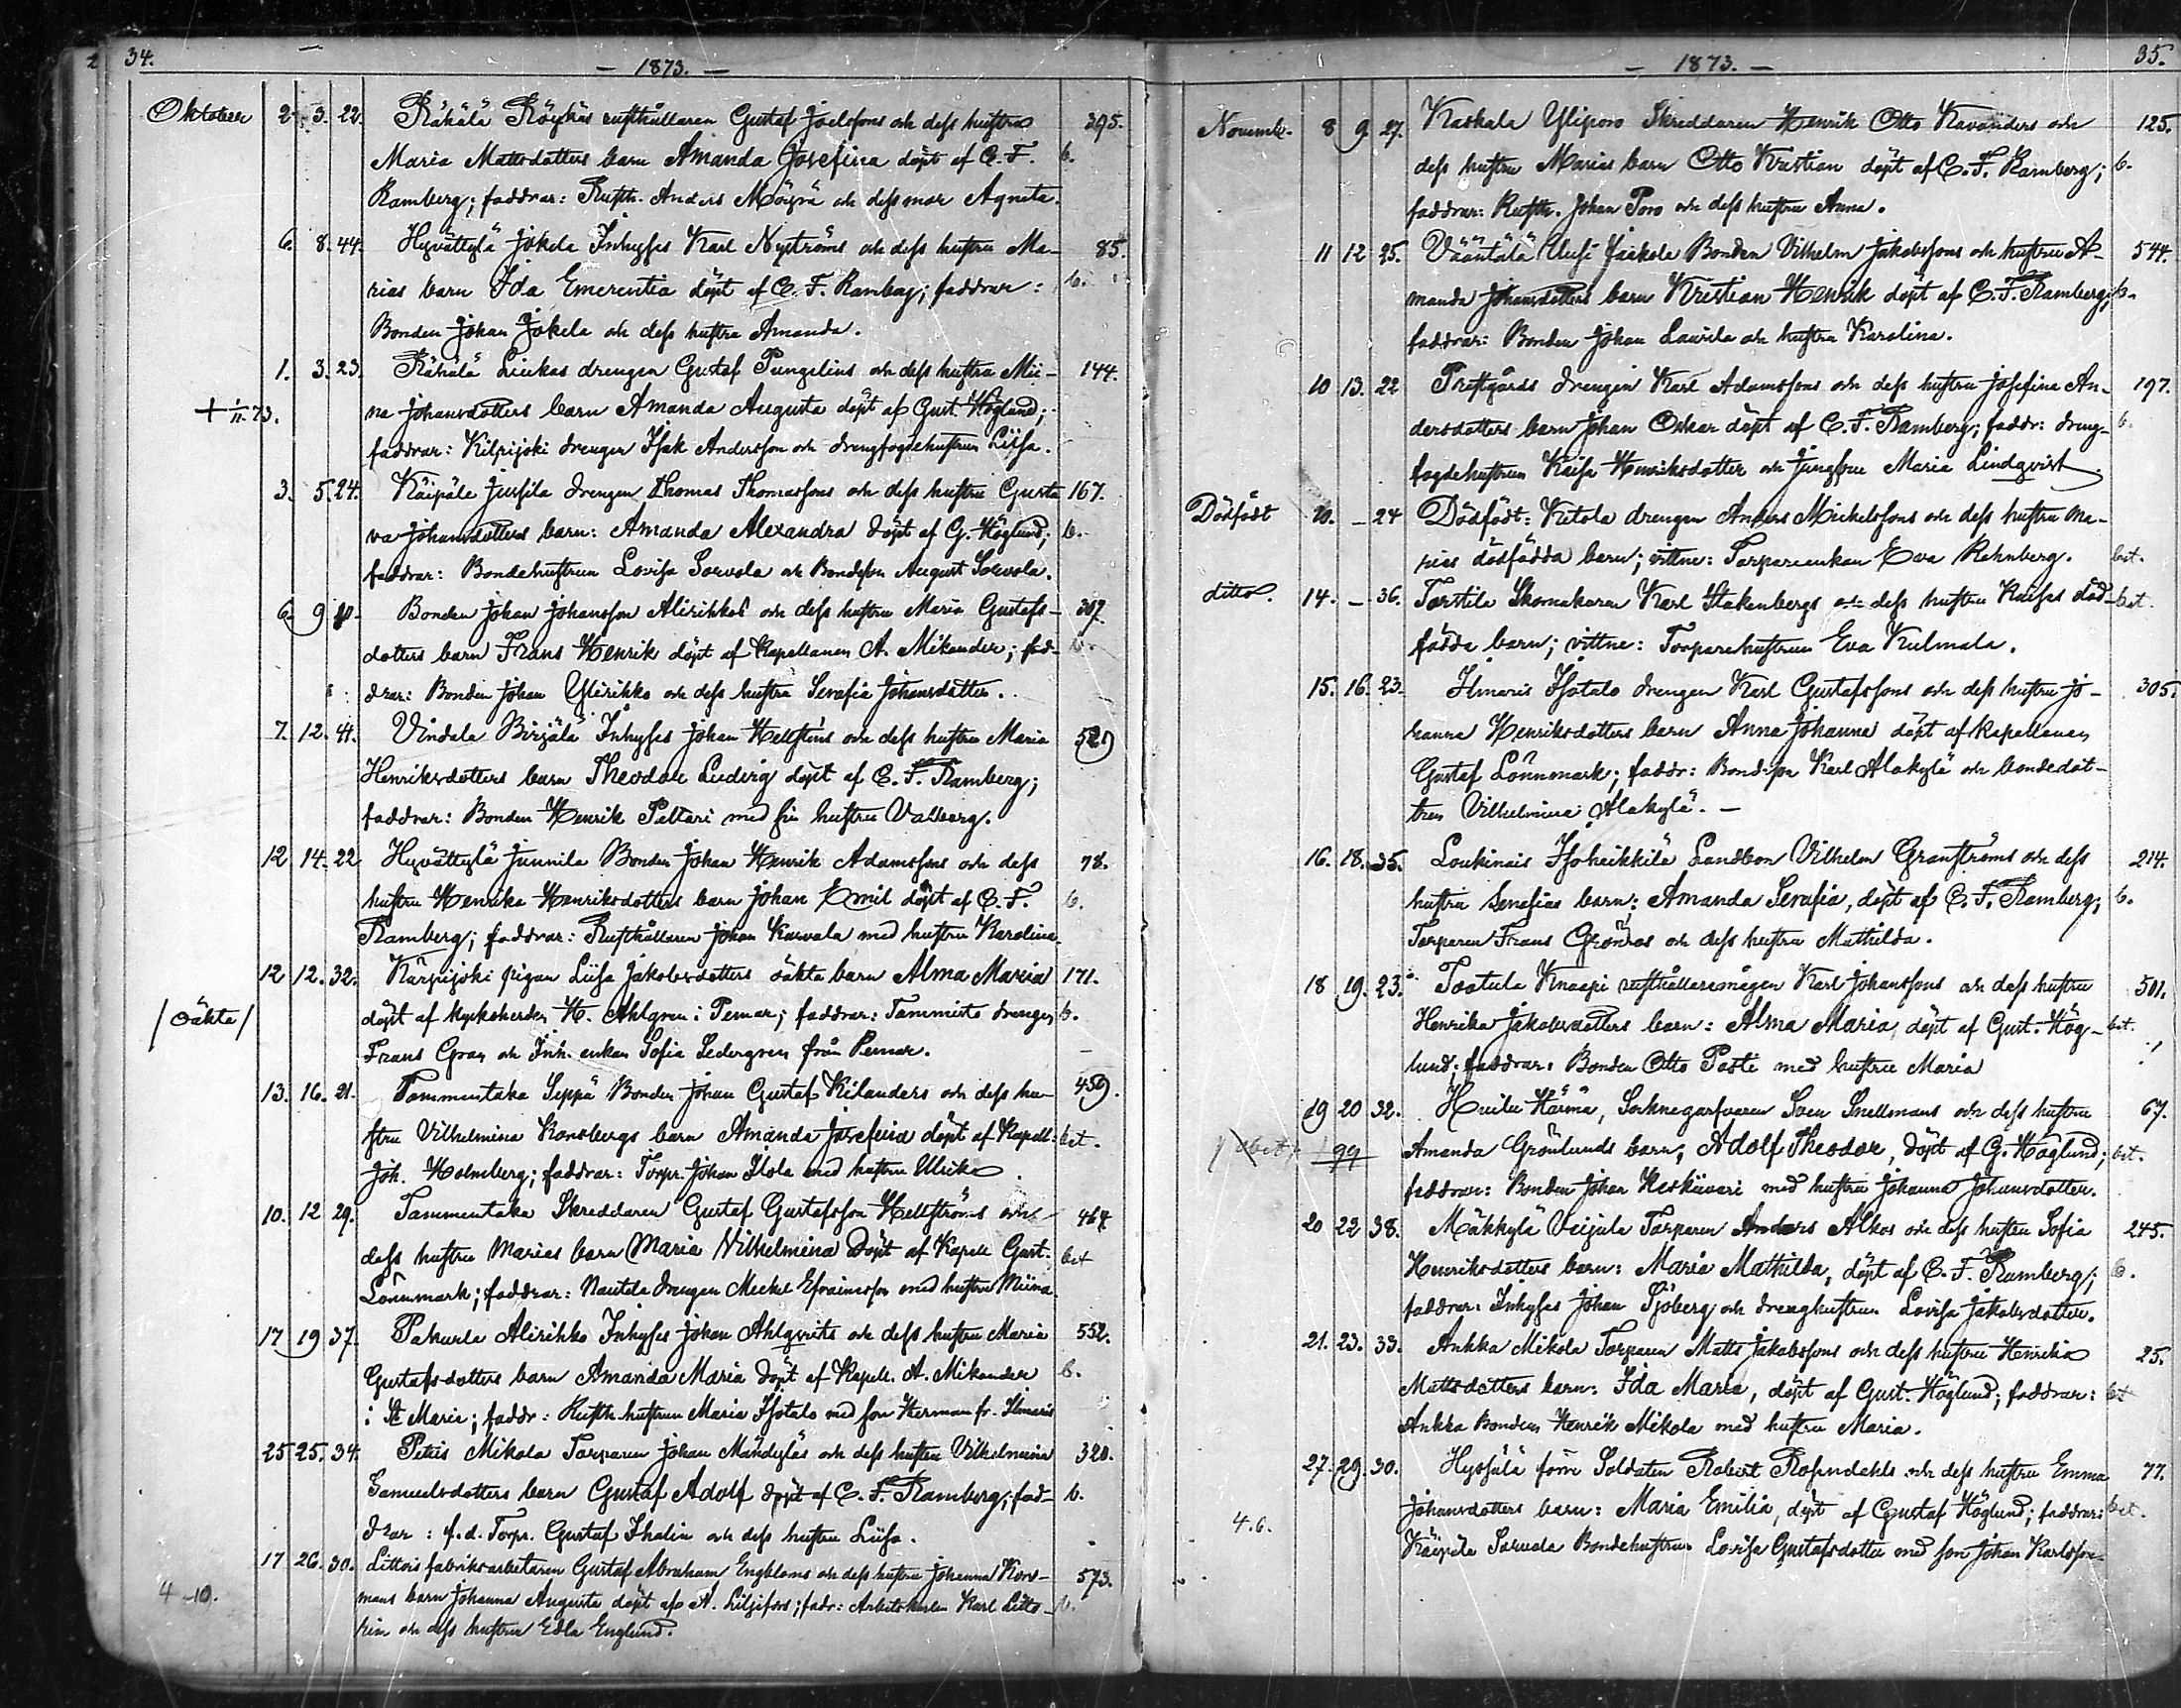 34.
— 1873. —
Oktober 2. 3. 22. Rähälä Röykäs rusthållaren Gustaf Joelssons och dess hustru 395.
Maria Mattsdotters barn Amanda Josefina döpt af C. F. b.
Ramberg; faddrar: Rusth. Anders Möyrä och dess mor Agneta.
6. 8. 44. Hyvättylä Jokela Inhyses Karl Nyströms och dess hustru Ma- 85.
rias barn Ida Emerentia döpt af C. F. Ramberg; faddrar: b.
Bonden Johan Jokela och dess hustru Amanda.
1. 3. 23. Rähälä Liukas drengen Gustaf Pungelins och dess hustru Mii- 144.
+ 1/11 73. na Johansdotters barn Amanda Augusta döpt af Gust. Höglund;
faddrar: Kilpijoki drengen Isak Andersson och drengfogdehustrun Liisa.
3. 5. 24. Käipäle Jussila drengen Thomas Thomassons och dess hustru Gusta 167.
va Johansdotters barn: Amanda Alexandra döpt af G. Höglund; b.
faddrar: Bondehustrun Lovisa Sorvola och Bondeson August Sorvola.
6. 9. Bonden Johan Johansson Alirihkos och dess hustru Maria Gustafs- 307.
dotters barn Frans Henrik döpt af Kapellanen A. Mikander; fad- b.
drar: Bonden Johan Ylirihko och dess hustru Serafia Johansdotter.
7. 12. 41. Vindala Birjälä Inhyses Johan Hellstens och dess hustru Maria 529
Henriksdotters barn Theodor Ludvig döpt af C. F. Ramberg;
faddrar: Bonden Henrik Paltari med sin hustru Valborg.
12 14. 22 Hyvättylä Junnila Bonden Johan Henrik Adamssons och dess 78.
hustru Henrika Henriksdotters barn Johan Emil döpt af C. F. b.
Ramberg; faddrar: Rusthållaren Johan Karvala med hustru Karolina.
12 12. 32. Kärpijoki pigan Liisa Jakobsdotters oäkta barn Alma Maria 171.
/oäkta/ döpt af kyrkoherden H. Ahlgren i Pemar; faddrar: Tammisto drengen b.
Frans Gran och Inh. enkan Sofia Sedergren från Pemar.
13. 16. 21. Tammentaka Seppä Bonden Johan Gustaf Kilanders och dess hu- 459.
stru Vilhelmina Konsbergs barn Amanda Josefina döpt af Kapell: bet.
Joh. Holmberg; faddrar: Torpr. Johan Ilola med hustru Ulrika
10. 12 29. Tammentaka Skreddaren Gustaf Gustafsson Hellströms och 464
dess hustru Marias barn Maria Vilhelmina Döpt af Kapell Gust. bet
Lönnmark; faddrar: Nautela drengen Mickel Efraimsson med hustru Miina
17 19 37. Pahurla Alirihko Inhyses Johan Ahlqvists och dess hustru Maria 552.
Gustafsdotters barn Amanda Maria döpt af Kapell. A. Mikander b.
i St Marie; faddr: Rusth. hustrun Maria Isotalo med son Herman fr. Ilmaris
25 25. 34. Petris Mikola Torparen Johan Mändyläs och dess hustru Vilhelmina 320.
Samuelsdotters barn Gustaf Adolf döpt af C. F. Ramberg; fad- b.
drar: f.d. Torpr. Gustaf Thalin och dess hustru Liisa.
17 26. 30. Littois fabriksarbetaren Gustaf Abraham Engbloms och dess hustru Johanna Kors- 573.
4–10. mans barn Johanna Augusta döpt af A. Liljefors; fadr: Arbetskarlen Karl Litto- b.
och dess hustru Edla Englund.
— 1873. —
35.
Novemb. 8 9. 27. Kaskala Yliporo Skreddaren Henrik Otto Kavanders och 125.
dess hustru Marias barn Otto Kristian döpt af C. F. Ramberg; b.
faddrar: Rusth. Johan Poro och dess hustru Anna.
11 12 25. Vääntälä Uusi Jaakola Bonden Vilhelm Jakobssons och hustru A- 544.
manda Johansdotters barn Kristian Henrik döpt af C. F. Ramberg; b.
faddrar: Bonden Johan Laurila och hustru Karolina.
10 13. 22 Prestgårds drengen Karl Adamssons och dess hustru Josefina An- 197.
dersdotters barn Johan Oskar döpt af C. F. Ramberg; faddr: dreng- b.
fogdehustrun Kaisa Henriksdotter och Jungfru Maria Lindqvist
Dödfödt 10. – 24 Dödfödt: Vietola drengen Anders Mickelssons och dess hustru Ma-
rias dödfödda barn; vittne: Torpareenkan Eva Rehnberg. bet.
ditto. 14. – 36. Torstila Skomakaren Karl Stakenbergs och dess hustru Kaisas död- bet.
födda barn; vittne: Torparehustrun Eva Kulmala.
15. 16. 23. Ilmaris Isotalo drengen Karl Gustafssons och dess hustru Jo- 305.
hanna Henriksdotters barn Anna Johanna döpt af kapellanen
Gustaf Lönnmark; faddr: Bondeson Karl Alakylä och bondedot-
tren Vilhelmina Alakylä. —
16. 18. 35. Loukinais Isoheikkilä Landbon Vilhelm Granströms och dess 214.
hustru Serafias barn: Amanda Serafia, döpt af C. F. Ramberg; b.
Torparen Frans Grönroos och dess hustru Mathilda.
18 19. 23. Tootula Knaapi rusthållaremågen Karl Johanssons och dess hustru 501.
Henrika Jakobsdotters barn: Alma Maria, döpt af Gust. Hög- bet.
lund; faddrar: Bonden Otto Pasti med hustru Maria
19 20 32. Huilu Härmä, Socknegarfvaren Sven Snellmans och dess hustru 67.
99 Amanda Grönlunds barn, Adolf Theodor, döpt af G. Höglund; bet.
faddrar: Bonden Johan Keskivari med hustru Johanna Johansdotter.
20 22 38. Mäkkylä Veijula Torparen Anders Alkos och dess hustru Sofia 245.
Henriksdotters barn: Maria Mathilda, döpt af C. F. Ramberg; b.
faddrar: Inhyses Johan Sjöberg och drenghustrun Lovisa Jakobsdotter.
21. 23. 33. Ankka Mikola Torparen Matts Jakobssons och dess hustru Henrika 25.
Mattsdotters barn: Ida Maria, döpt af Gust. Höglund; faddrar: bet
Ankka Bonden Henrik Mikola med hustru Maria.
27. 29. 30. Hyssälä förre Soldaten Robert Rosendahls och dess hustru Emma 77.
Johansdotters barn: Maria Emilia, döpt af Gustaf Höglund; faddrar: bet.
4.6. Käipäle Bondehustrun Lovisa Gustafsdotter med son Johan Karlsson